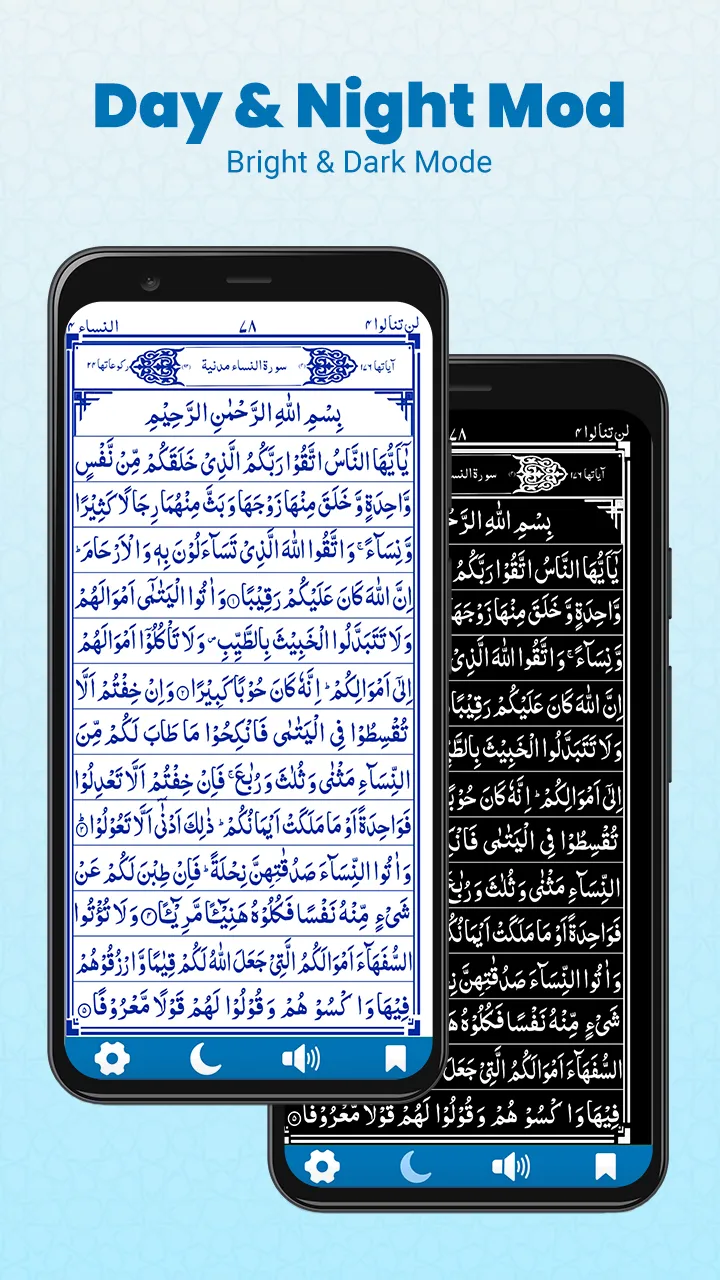 Day & Night Mod
Bright & Dark Mode
لن تنالوا ۴ ۷۸ النساء ۴
آیاتها ۱۷۶ سورة النساء مدنیة رکوعاتها ۲۴
بِسْمِ اللّٰهِ الرَّحْمٰنِ الرَّحِیْمِ
یٰۤاَیُّهَا النَّاسُ اتَّقُوْا رَبَّكُمُ الَّذِیْ خَلَقَكُمْ مِّنْ نَّفْسٍ
وَّاحِدَةٍ وَّ خَلَقَ مِنْهَا زَوْجَهَا وَ بَثَّ مِنْهُمَا رِجَالًا كَثِیْرًا
وَّ نِسَآءً ۚ وَ اتَّقُوا اللّٰهَ الَّذِیْ تَسَآءَلُوْنَ بِهٖ وَ الْاَرْحَامَ ؕ
اِنَّ اللّٰهَ كَانَ عَلَیْكُمْ رَقِیْبًا ۱ وَ اٰتُوا الْیَتٰمٰۤی اَمْوَالَهُمْ
وَ لَا تَتَبَدَّلُوا الْخَبِیْثَ بِالطَّیِّبِ ۪ وَ لَا تَاْكُلُوْۤا اَمْوَالَهُمْ
اِلٰۤی اَمْوَالِكُمْ ؕ اِنَّهٗ كَانَ حُوْبًا كَبِیْرًا ۲ وَ اِنْ خِفْتُمْ اَلَّا
تُقْسِطُوْا فِی الْیَتٰمٰی فَانْكِحُوْا مَا طَابَ لَكُمْ مِّنَ
النِّسَآءِ مَثْنٰی وَ ثُلٰثَ وَ رُبٰعَ ۚ فَاِنْ خِفْتُمْ اَلَّا تَعْدِلُوْا
فَوَاحِدَةً اَوْ مَا مَلَكَتْ اَیْمَانُكُمْ ؕ ذٰلِكَ اَدْنٰۤی اَلَّا تَعُوْلُوْا ۳
وَ اٰتُوا النِّسَآءَ صَدُقٰتِهِنَّ نِحْلَةً ؕ فَاِنْ طِبْنَ لَكُمْ عَنْ
شَیْءٍ مِّنْهُ نَفْسًا فَكُلُوْهُ هَنِیْٓـًٔا مَّرِیْٓـًٔا ۴ وَ لَا تُؤْتُوا
السُّفَهَآءَ اَمْوَالَكُمُ الَّتِیْ جَعَلَ اللّٰهُ لَكُمْ قِیٰمًا وَّ ارْزُقُوْهُمْ
فِیْهَا وَ اكْسُوْهُمْ وَ قُوْلُوْا لَهُمْ قَوْلًا مَّعْرُوْفًا ۵
لن تنالوا ۴ ۷۸
آیاتها ۱۷۶ سورة النس
بِسْمِ اللّٰهِ الرَّحْ
یٰۤاَیُّهَا النَّاسُ اتَّقُوْا رَبَّكُمُ
وَّاحِدَةٍ وَّ خَلَقَ مِنْهَا زَوْجَهَا
وَّ نِسَآءً ۚ وَ اتَّقُوا اللّٰهَ الَّذِیْ
اِنَّ اللّٰهَ كَانَ عَلَیْكُمْ رَقِیْبًا
وَ لَا تَتَبَدَّلُوا الْخَبِیْثَ بِالطَّ
اِلٰۤی اَمْوَالِكُمْ ؕ اِنَّهٗ كَانَ حُوْبً
تُقْسِطُوْا فِی الْیَتٰمٰی فَانْكِ
النِّسَآءِ مَثْنٰی وَ ثُلٰثَ وَ رُبٰعَ
فَوَاحِدَةً اَوْ مَا مَلَكَتْ اَیْمَانُكُ
وَ اٰتُوا النِّسَآءَ صَدُقٰتِهِنَّ نِ
شَیْءٍ مِّنْهُ نَفْسًا فَكُلُوْهُ هَ
السُّفَهَآءَ اَمْوَالَكُمُ الَّتِیْ جَعَلَ
فِیْهَا وَ اكْسُوْهُمْ وَ قُوْلُوْا لَهُمْ قَوْلًا مَّعْرُوْفًا ۵